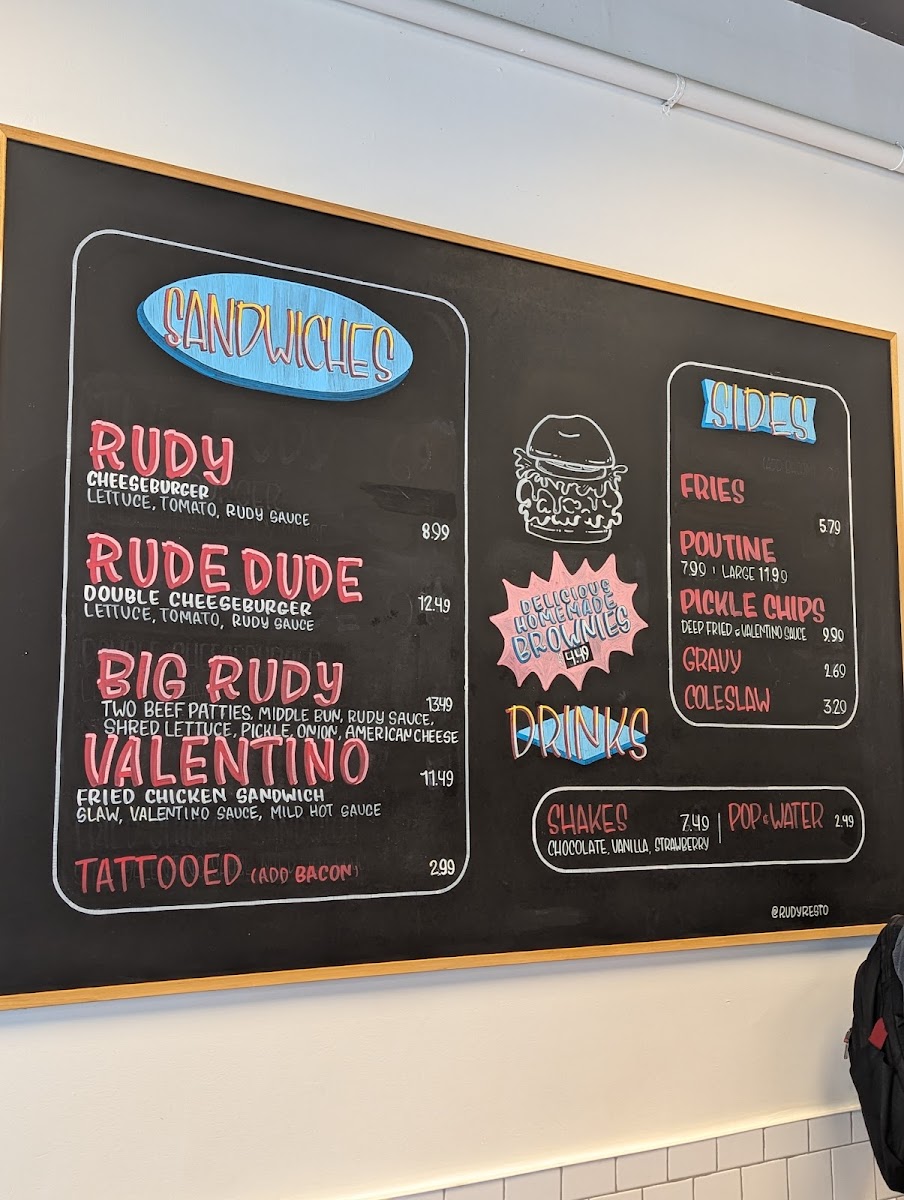 SANDWICHES
RUDY
CHEESEBURGER
LETTUCE, TOMATO, RUDY SAUCE
8.99
RUDE DUDE
DOUBLE CHEESEBURGER 12.49
LETTUCE, TOMATO, RUDY SAUCE
BIG RUDY 13.49
TWO BEEF PATTIES, MIDDLE BUN, RUDY SAUCE,
SHRED LETTUCE, PICKLE, ONION, AMERICAN CHEESE
VALENTINO 11.49
FRIED CHICKEN SANDWICH
SLAW, VALENTINO SAUCE, MILD HOT SAUCE
TATTOOED (ADD BACON) 2.99
DELICIOUS
HOMEMADE
BROWNIES
4.49
SIDES
FRIES
5.79
POUTINE
7.99 | LARGE 11.99
PICKLE CHIPS
DEEP FRIED & VALENTINO SAUCE 9.99
GRAVY 2.69
COLESLAW 3.29
DRINKS
SHAKES 7.49 | POP & WATER 2.49
CHOCOLATE, VANILLA, STRAWBERRY
@RUDYRESTO